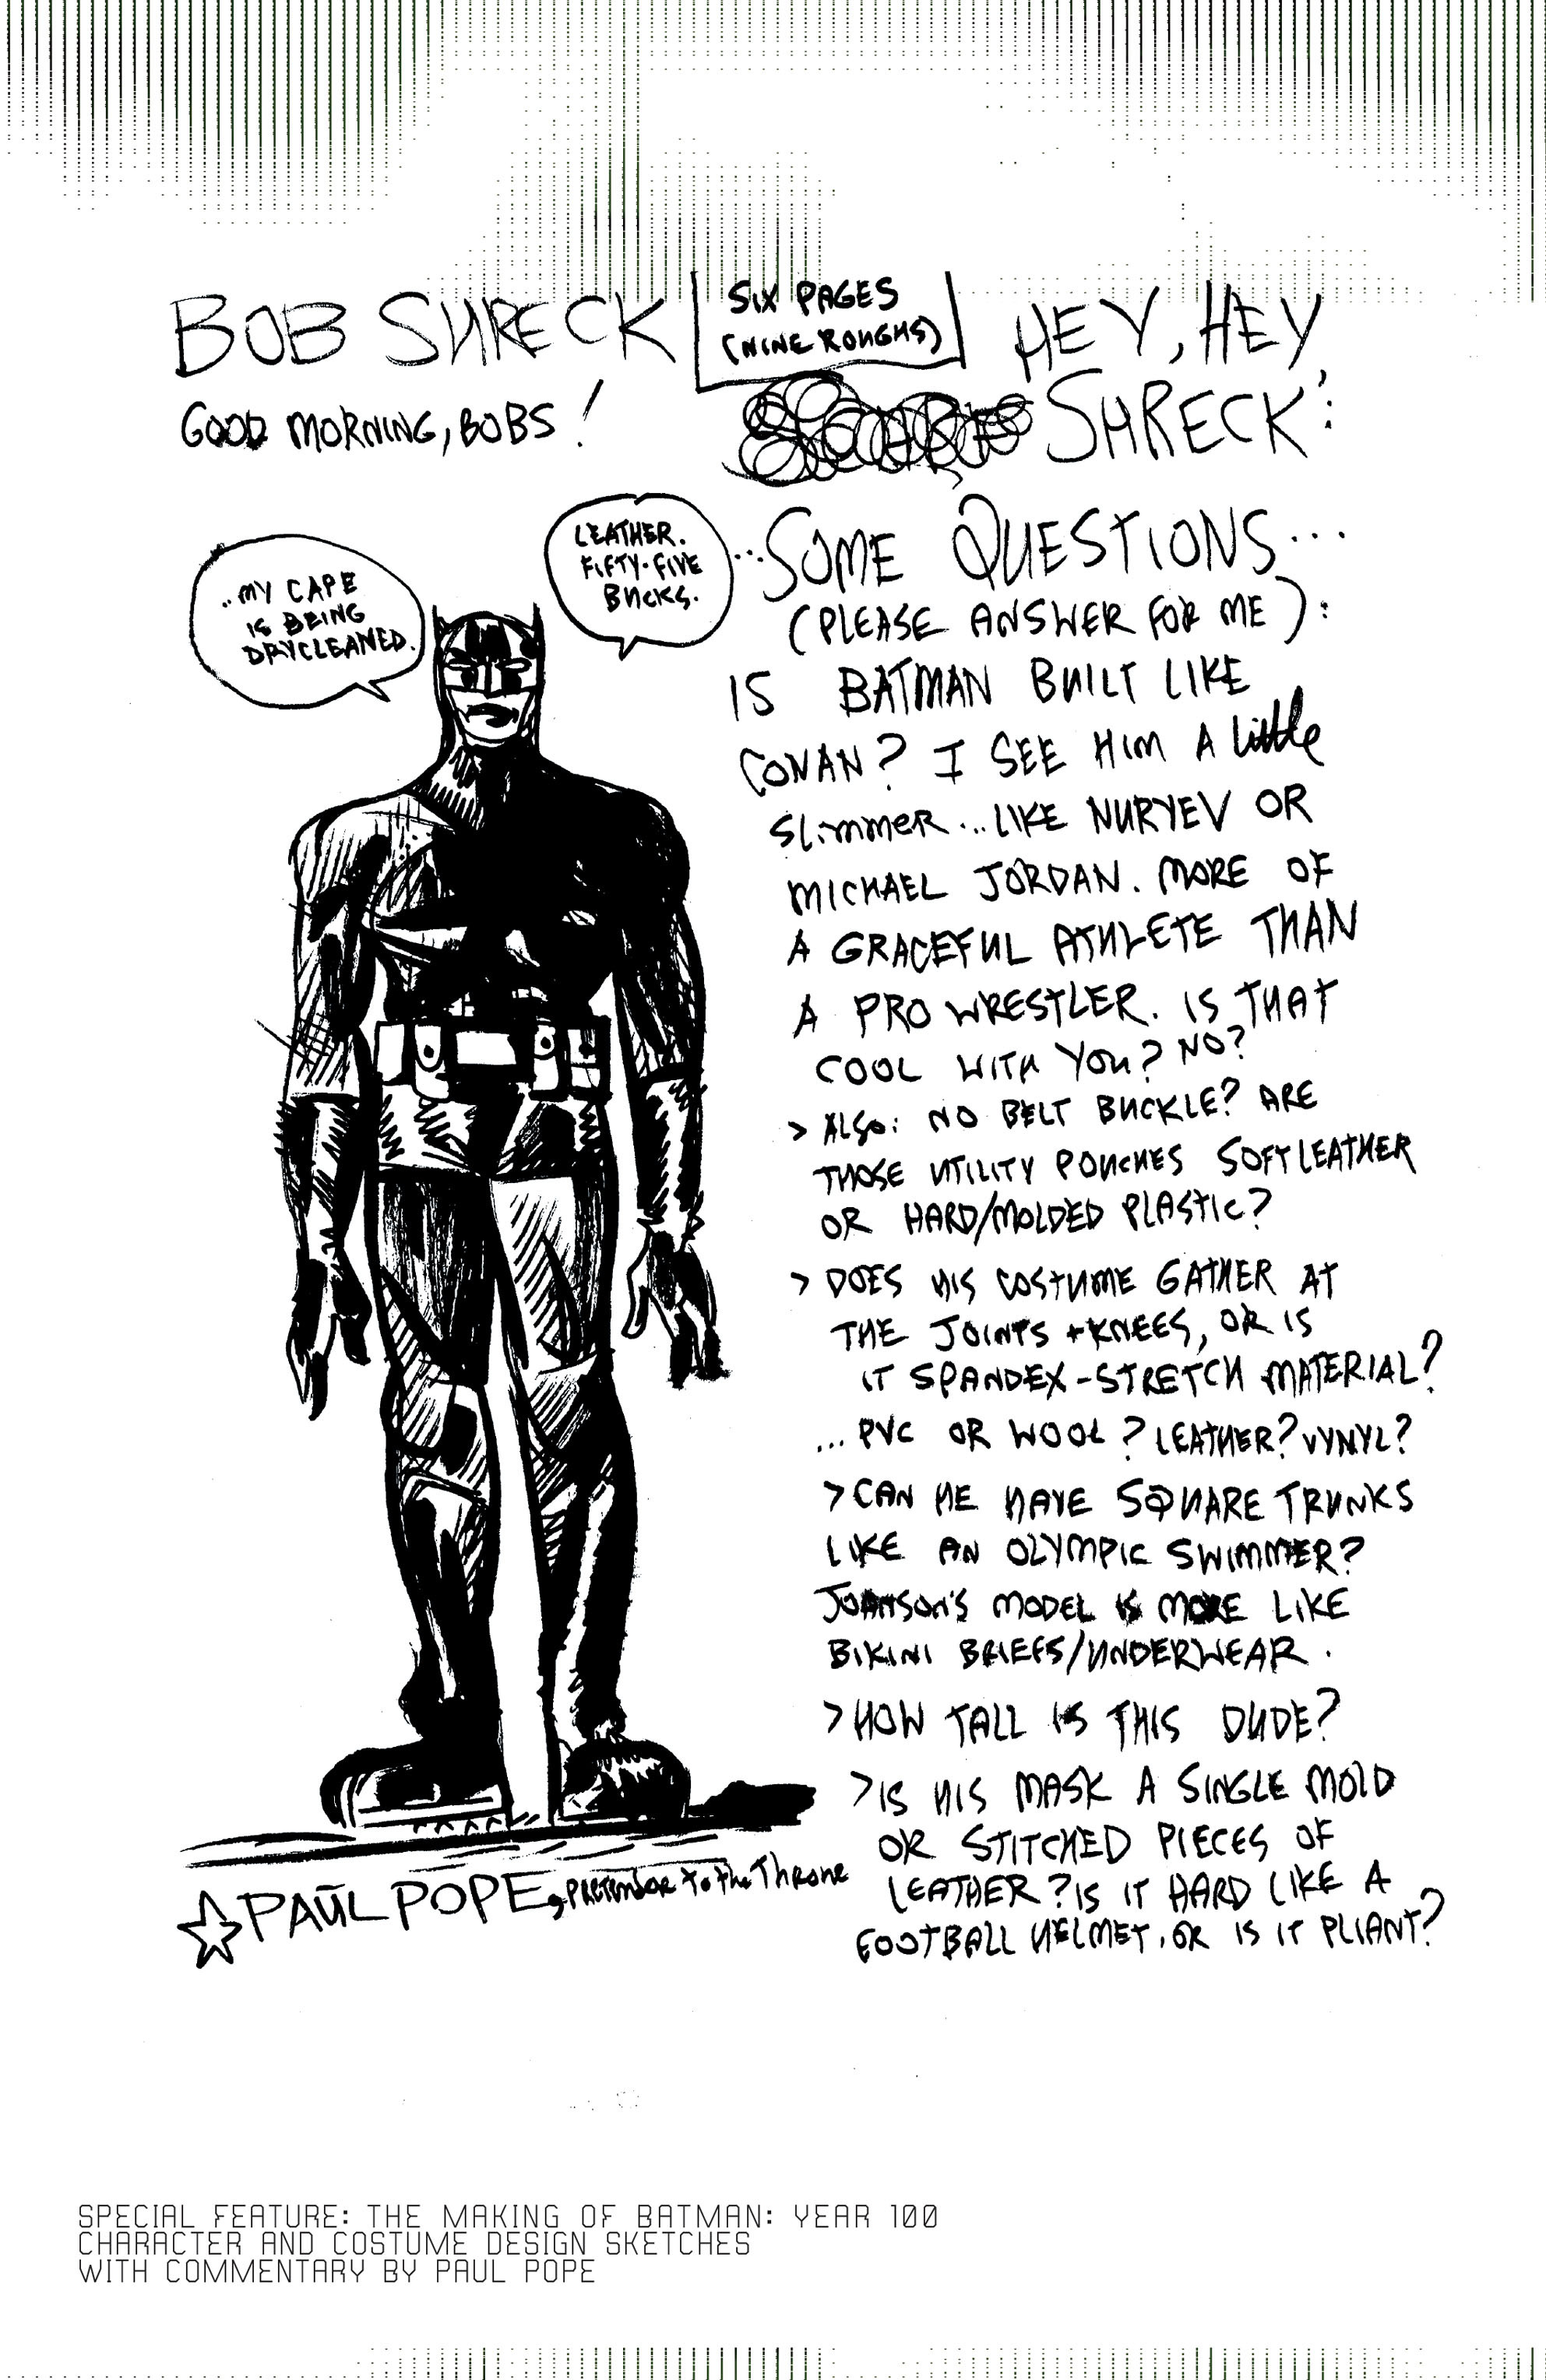 BOB SHRECK
SIX PAGES
(NINE ROUGHS)
GOOD MORNING, BOBS!
HEY, HEY,
SHRECK:
..MY CAPE
IS BEING
DRYCLEANED.
LEATHER.
FIFTY-FIVE
BUCKS.
...SOME QUESTIONS...
(PLEASE ANSWER FOR ME):
IS BATMAN BUILT LIKE
CONAN? I SEE HIM A little
SLimmer...LIKE NURYEV OR
MICHAEL JORDAN. MORE OF
A GRACEFUL ATHLETE THAN
A PRO WRESTLER. IS THAT
COOL WITH YOU? NO?
> ALSO: NO BELT BUCKLE? ARE
THOSE UTILITY POUCHES SOFT LEATHER
OR HARD/MOLDED PLASTIC?
> DOES HIS COSTUME GATHER AT
THE JOINTS + KNEES, OR IS
IT SPANDEX-STRETCH MATERIAL?
... PVC OR WOOL? LEATHER? VYNYL?
> CAN HE HAVE SQUARE TRUNKS
LIKE AN OLYMPIC SWIMMER?
JOHNSON'S MODEL IS MORE LIKE
BIKINI BRIEFS/UNDERWEAR.
> HOW TALL IS THIS DUDE?
> IS HIS MASK A SINGLE MOLD
OR STITCHED PIECES OF
LEATHER? IS IT HARD LIKE A
FOOTBALL HELMET, OR IS IT PLIANT?
PAUL POPE, PRETENDER to the Throne
SPECIAL FEATURE: THE MAKING OF BATMAN: YEAR 100
CHARACTER AND COSTUME DESIGN SKETCHES
WITH COMMENTARY BY PAUL POPE